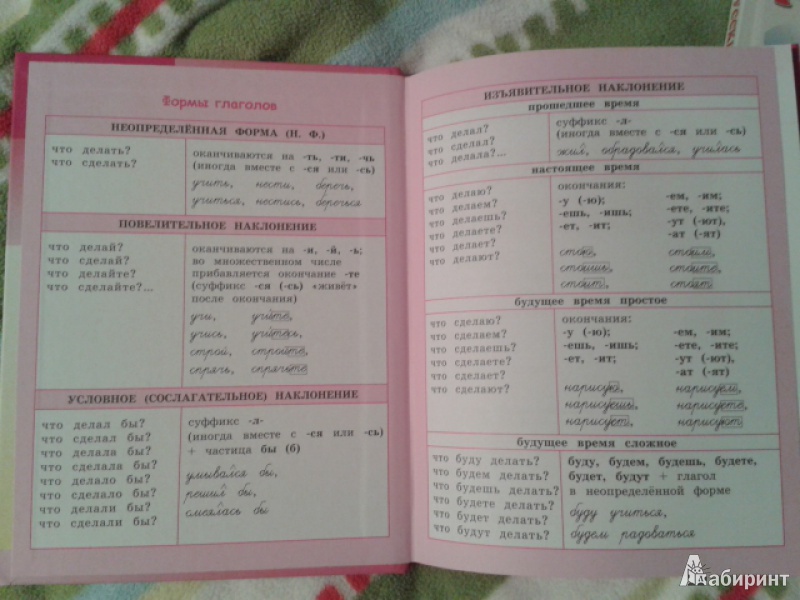 Формы глаголов
НЕОПРЕДЕЛЁННАЯ ФОРМА (Н. Ф.)
что делать?
что сделать?
оканчиваются на -ть, -ти, -чь
(иногда вместе с -ся или -сь)
учить, нести, беречь,
учиться, нестись, беречься
ПОВЕЛИТЕЛЬНОЕ НАКЛОНЕНИЕ
что делай?
что сделай?
что делайте?
что сделайте?...
оканчиваются на -и, -й, -ь;
во множественном числе
прибавляется окончание -те
(суффикс -ся (-сь) «живёт»
после окончания)
учи, учите,
учись, учитесь,
строй, стройте,
спрячь, спрячьте
УСЛОВНОЕ (СОСЛАГАТЕЛЬНОЕ) НАКЛОНЕНИЕ
что делал бы?
что сделал бы?
что делала бы?
что сделала бы?
что делало бы?
что сделало бы?
что делали бы?
что сделали бы?
суффикс -л-
(иногда вместе с -ся или -сь)
+ частица бы (б)
умывался бы,
решил бы,
смеялась бы
ИЗЪЯВИТЕЛЬНОЕ НАКЛОНЕНИЕ
прошедшее время
что делал?
что сделал?
что делала?...
суффикс -л-
(иногда вместе с -ся или -сь)
жил, обрадовался, училась
настоящее время
что делаю?
что делаем?
что делаешь?
что делаете?
что делает?
что делают?
окончания:
-у (-ю); -ем, -им;
-ешь, -ишь; -ете, -ите;
-ет, -ит; -ут (-ют),
-ат (-ят)
стою, стоим,
стоишь, стоите,
стоит, стоят
будущее время простое
что сделаю?
что сделаем?
что сделаешь?
что сделаете?
что сделает?
что сделают?
окончания:
-у (-ю); -ем, -им;
-ешь, -ишь; -ете, -ите;
-ет, -ит; -ут (-ют),
-ат (-ят)
нарисую, нарисуем,
нарисуешь, нарисуете,
нарисует, нарисуют
будущее время сложное
что буду делать?
что будем делать?
что будешь делать?
что будете делать?
что будет делать?
что будут делать?
буду, будем, будешь, будете,
будет, будут + глагол
в неопределённой форме
буду учиться,
будем радоваться
Лабиринт